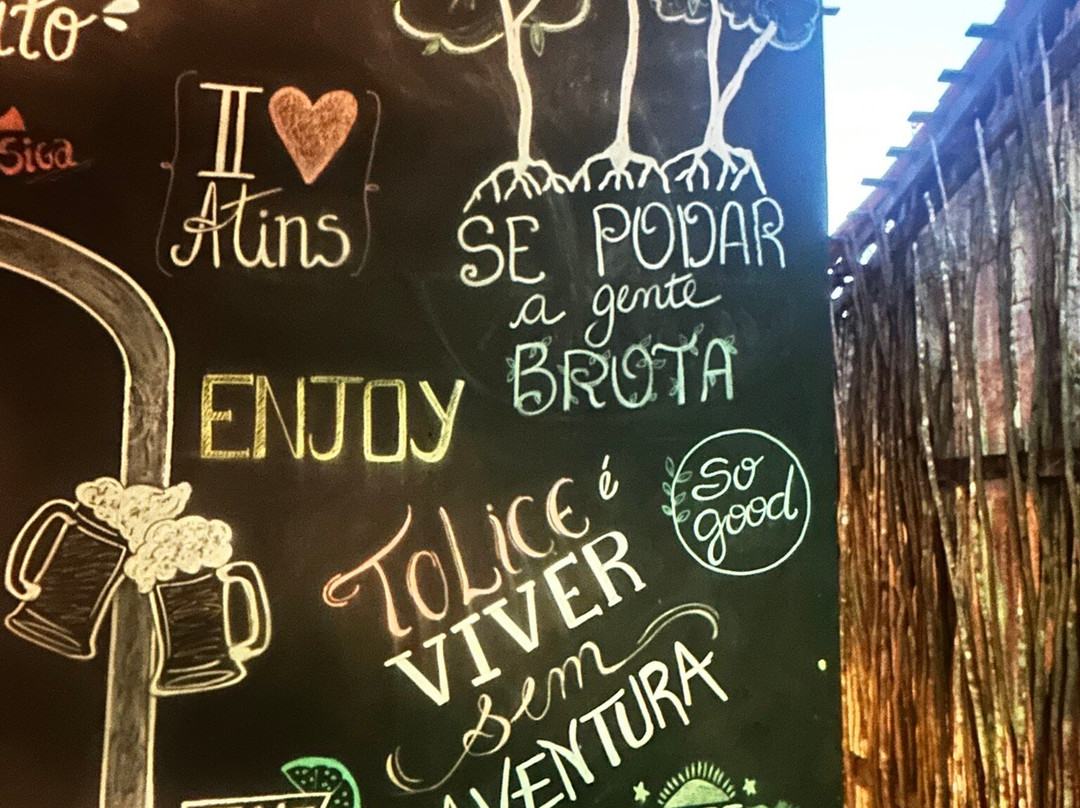 I
Atins
SE PODAR
a gente
BROTA
ENJOY
So
good
TOLiCE é
VIVER
sem
AVENTURA